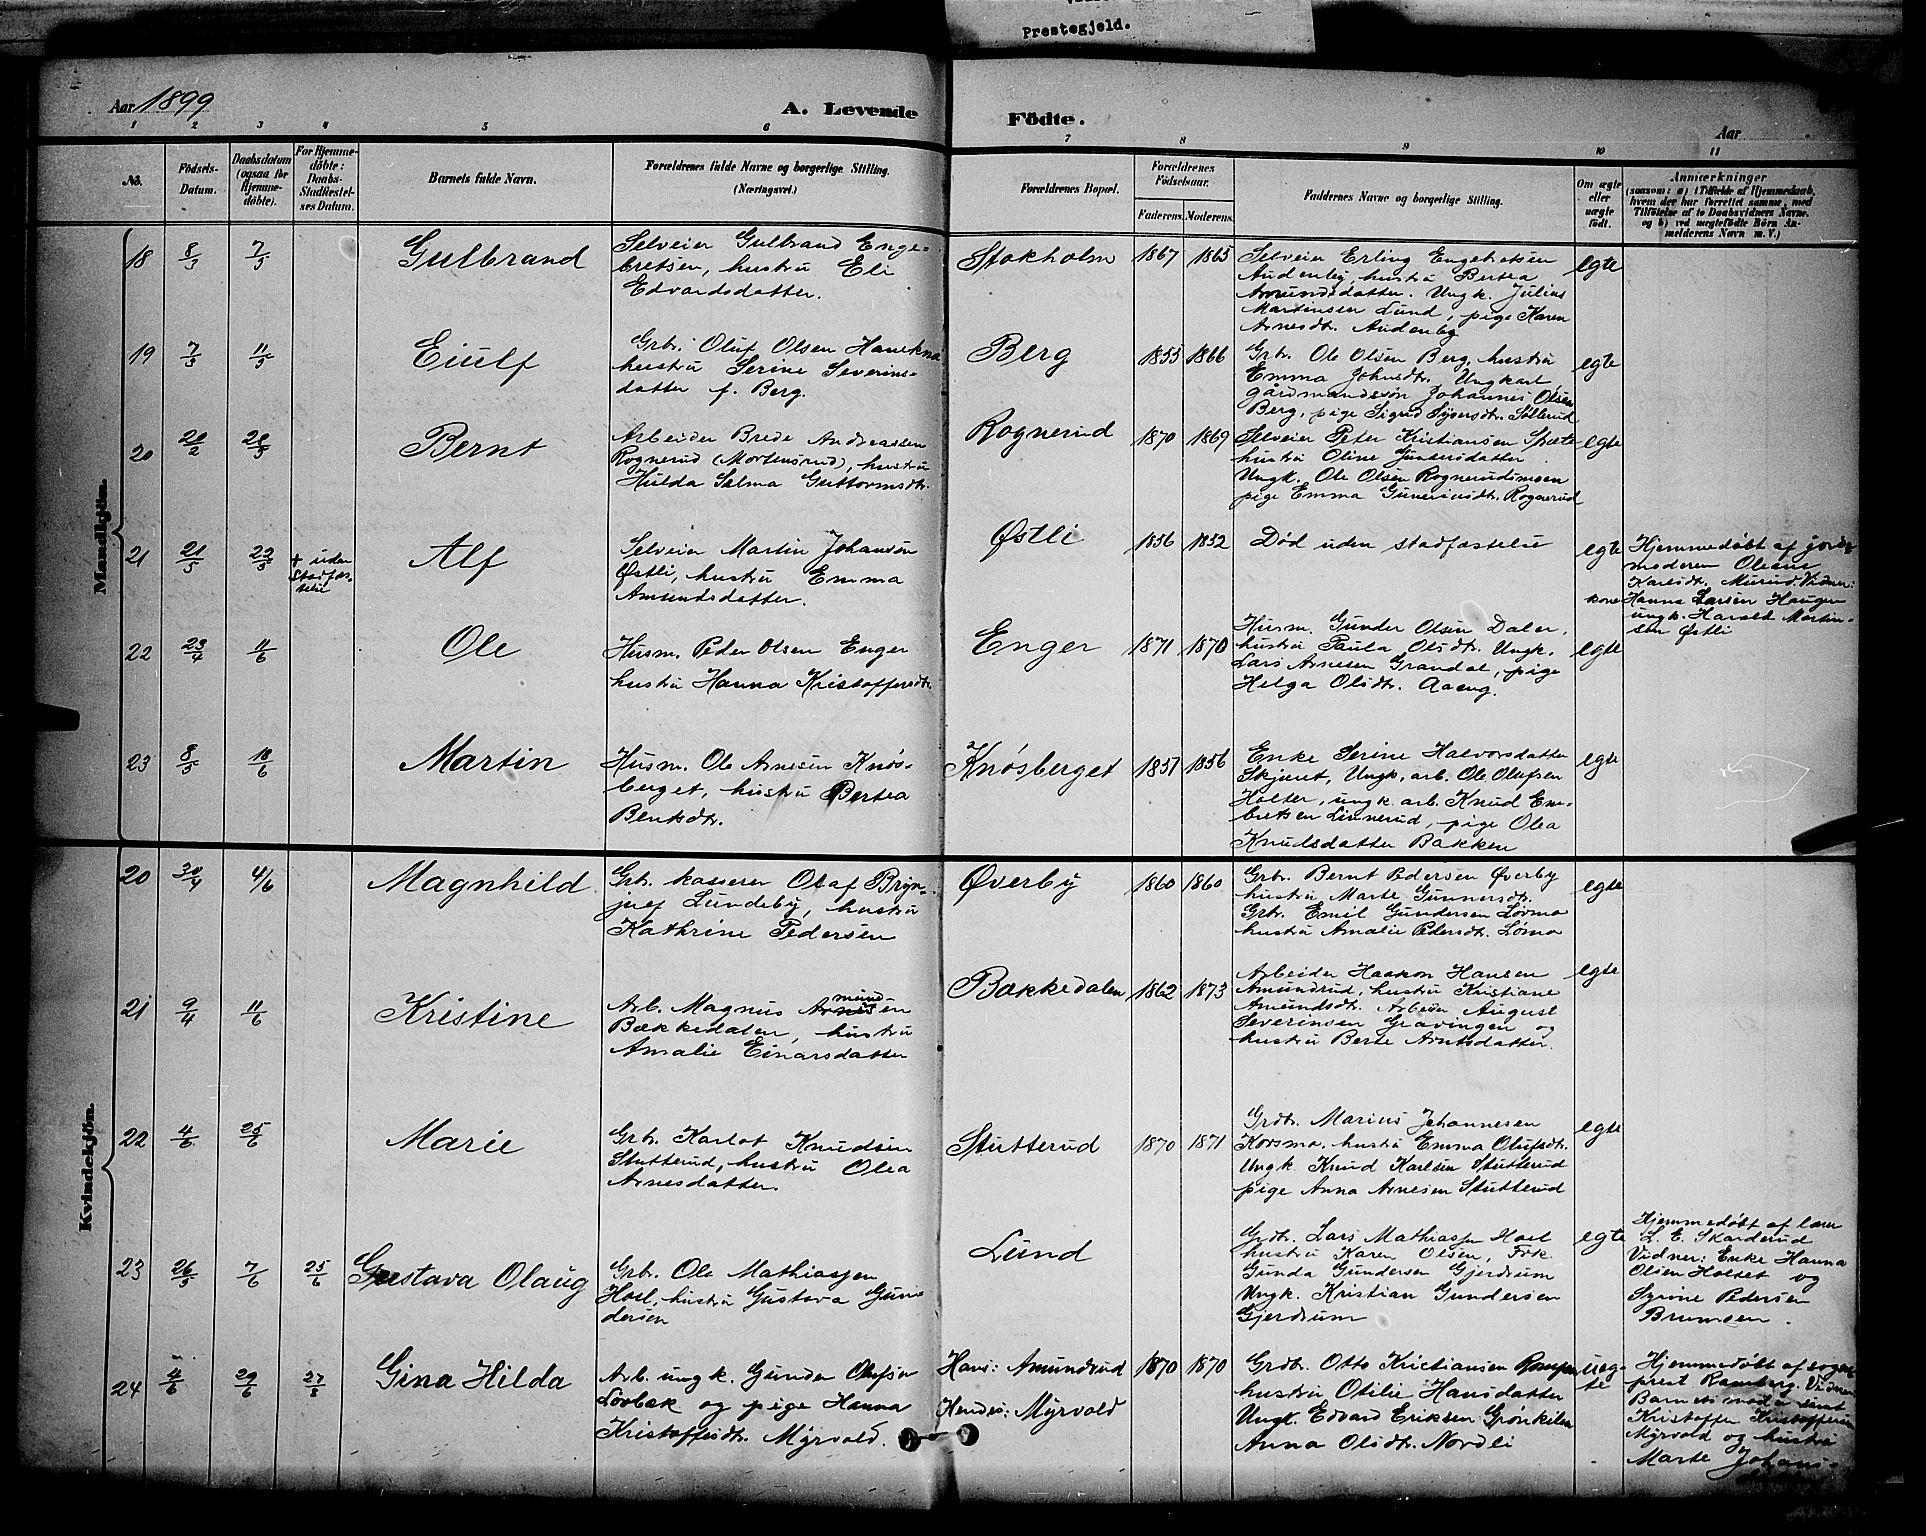 Prestegjeld.
Aar 1899
A. Levende Födte.
Aar
1 2 3 4 5 6 7 8 9 10 11
No.
Födsels-
Datum.
Daabsdatum
(ogsaa for
Hjemme-
döbte).
For Hjemme-
döbte:
Daabs-
Stadfæstel-
ses Datum.
Barnets fulde Navn.
Forældrenes fulde Navne og borgerlige Stilling.
(Næringsvei.)
Forældrenes Bopæl.
Forældrenes
Födselsaar.
Faderens. Moderens.
Faddernes Navne og borgerlige Stilling.
Om ægte
eller
uægte
födt.
Anmærkninger
(saasom: a) i Tilfælde af Hjemmedaab,
hvem der har forrettet samme, med
Tilföielse af to Daabsvidners Navne,
og b) ved uægtefödte Börn An-
melderens Navn m. V.)
Mandkjön.
18 8/3 7/5 Gulbrand
Selveier Gulbrand Enge-
bretsen, hustru Eli
Edvardsdatter.
Stokholm 1867 1865
Selveier Erling Engebretsen
Audenby, hustru Bertea
Amundsdatter. Ungk. Julius
Martinsen Lund, pige Karen
Arnesdt. Audenby
egte
19 7/3 11/5 Eiulf
Grbr. Oluf Olsen
hustru Serine Severins-
datter f. Berg.
Berg 1855 1866
Grbr. Ole Olsen Berg, hustru
Emma Johnsdtr. Ungkarl
gårdmandssøn Johannes Olsen
Berg, pige Sigrid Syversdt. Søllerud
egte
20 Bernt
Arbeider Brede Andreassen
Rognerud (Mortensrud), hustru
Hulda Selma Guttormsdt.
Rognerud 1870 1869
Selveier Peter Kristiansen
hustru Oline Gundersdatter
Ungk. Ole Olsen Rognerudsmoen
pige Emma Gunerius dt. Rognerud
egte
21 21/5 22/5 + uden
Stadfæs-
telse
Alf
Selveier Martin Johansen
Østli, hustru Emma
Amundsdatter.
Østli 1856 1852
Død uden stadfæstelse
egte
Hjemmedøbt af jord-
moderen Oleane
Karlsdt. Murud. Vidner:
kone Hanna Larsen Haugen
ungk. Harald Martin-
sen Østli
22 23/4 11/6 Ole
Husm. Peder Olsen Enger
hustru Hanna Kristoffersdt.
Enger 1871 1870
Husm. Gunder Olsen Daler,
hustru Paula Olsdt. Ungk.
Lars Arnesen Grandal, pige
Helga Olsdt. Aaeng.
egte
23 8/5 18/6 Martin
Husm. Ole Arnesen Knøs-
berget, hustru Bertea
Berntsdtr.
Knøsberget 1857 1856
Enke Serine Halvorsdatter
Skjeret, Ungk. arb. Ole Olafsen
Holter, ungk arb. Knud Em-
bretsen Linnerud, pige Olea
Knudsdatter Bakken
egte
Kvindekjön.
20 30/4 4/6 Magnhild
Grb. kasserer Olaf Bryn-
julf Lundeby, hustru
Kathrine Pedersen
Øverby 1860 1860
Grbr. Bernt Pedersen Øverby
hustru Marte Gunnersdt.
Grbr. Emil Gundersen Løvmo
hustru Amalie Pedersdt. Lømo
egte
21 9/4 11/6 Kristine
Arb. Magnus Amundsen
Bækkedalen, hustru
Amalie Einarsdatter
Bækkedalen 1862 1873
Arbeider Haakon Hansen
Amundrud, hustru Kristiane
Amundsdt. Arbeider August
Severinsen Gravingen og
hustru Berte Arntsdatter.
egte
22 4/6 25/6 Marie
Grb. Karlot Knudsen
Stutterud, hustru Olea
Arnesdatter.
Stutterud 1870 1871
Grdbr. Marius Johannesen
Korsmo, hustru Emma Olufsdt.
Ungk. Knud Karlsen Stutterud
pige Anna Arnesen Stutterud
egte
23 26/5 7/6 25/6 Gustava Olaug
Grb. Ole Mathiassen
Hoel, hustru Gustava Gun-
dersen
Lund
Grdbr. Lars Mathiassen Hoel
hustru Karen Olsen, Frk.
Gunda Gundersen Gjerdrum
Ungk. Kristian Gundersen
Gjerdrum
egte
Hjemmedøbt af lærer
L. E. Skarderud
Vidner: Enke Hanna
Olsen Holtet og
Syrine Pedersen
Brumoen.
24 4/6 29/6 27/8 Gina Hilda
Arb. ungk. Gunder Olufsen
Lovbæk og pige Hanna
Kristoffersdt. Myrvold.
Hans: Amundrud
Hendes: Myrvold
1870 1870
Grdbr. Otto Kristiansen
hustru Otilie Hansdatter
Ungk. Edvard Eriksen Grønkilen
Anna Olsdt. Nordli
uæg-
te
Hjemmedøbt af sogne-
prest Ramberg. Vidner
Barnets moder samt
Kristoffer Kristoffersen
Myrvold og hustru
Marte Johans-